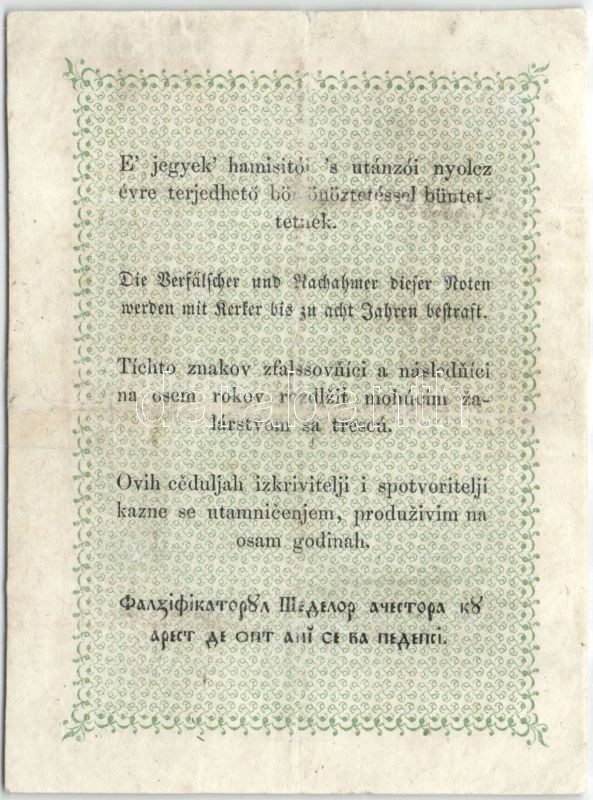 E' jegyek' hamisitói 's utánzói nyolcz
évre terjedhető börtönöztetéssel büntet-
tetnek.
Die Verfälscher und Nachahmer dieser Noten
werden mit Kerker bis zu acht Jahren bestraft.
Tíchto znakov zfalssovňíci a násleďňíci
na osem rokov rozdlžiť mohúcim ža-
lárstvom sa trescú.
Ovih cěduljah izkrivitelji i spotvoritelji
kazne se utamničenjem, produživim na
osam godinah.
Фалціфікаторꙋл Шеделор ачестора кꙋ
арест де опт анĭ се ва педепсі.